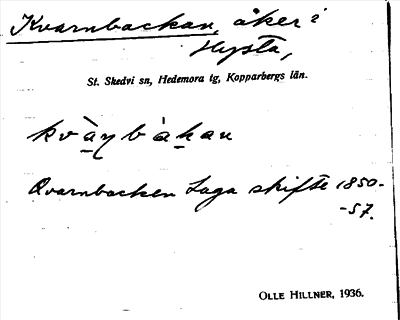 Kvarnbackan, åker i
Hysta,
St. Skedvi sn, Hedemora tg, Kopparbergs län.
kvàṇbàkan
Qvarnbacken Laga skifte 1850-
-57.
OLLE HILLNER, 1936.